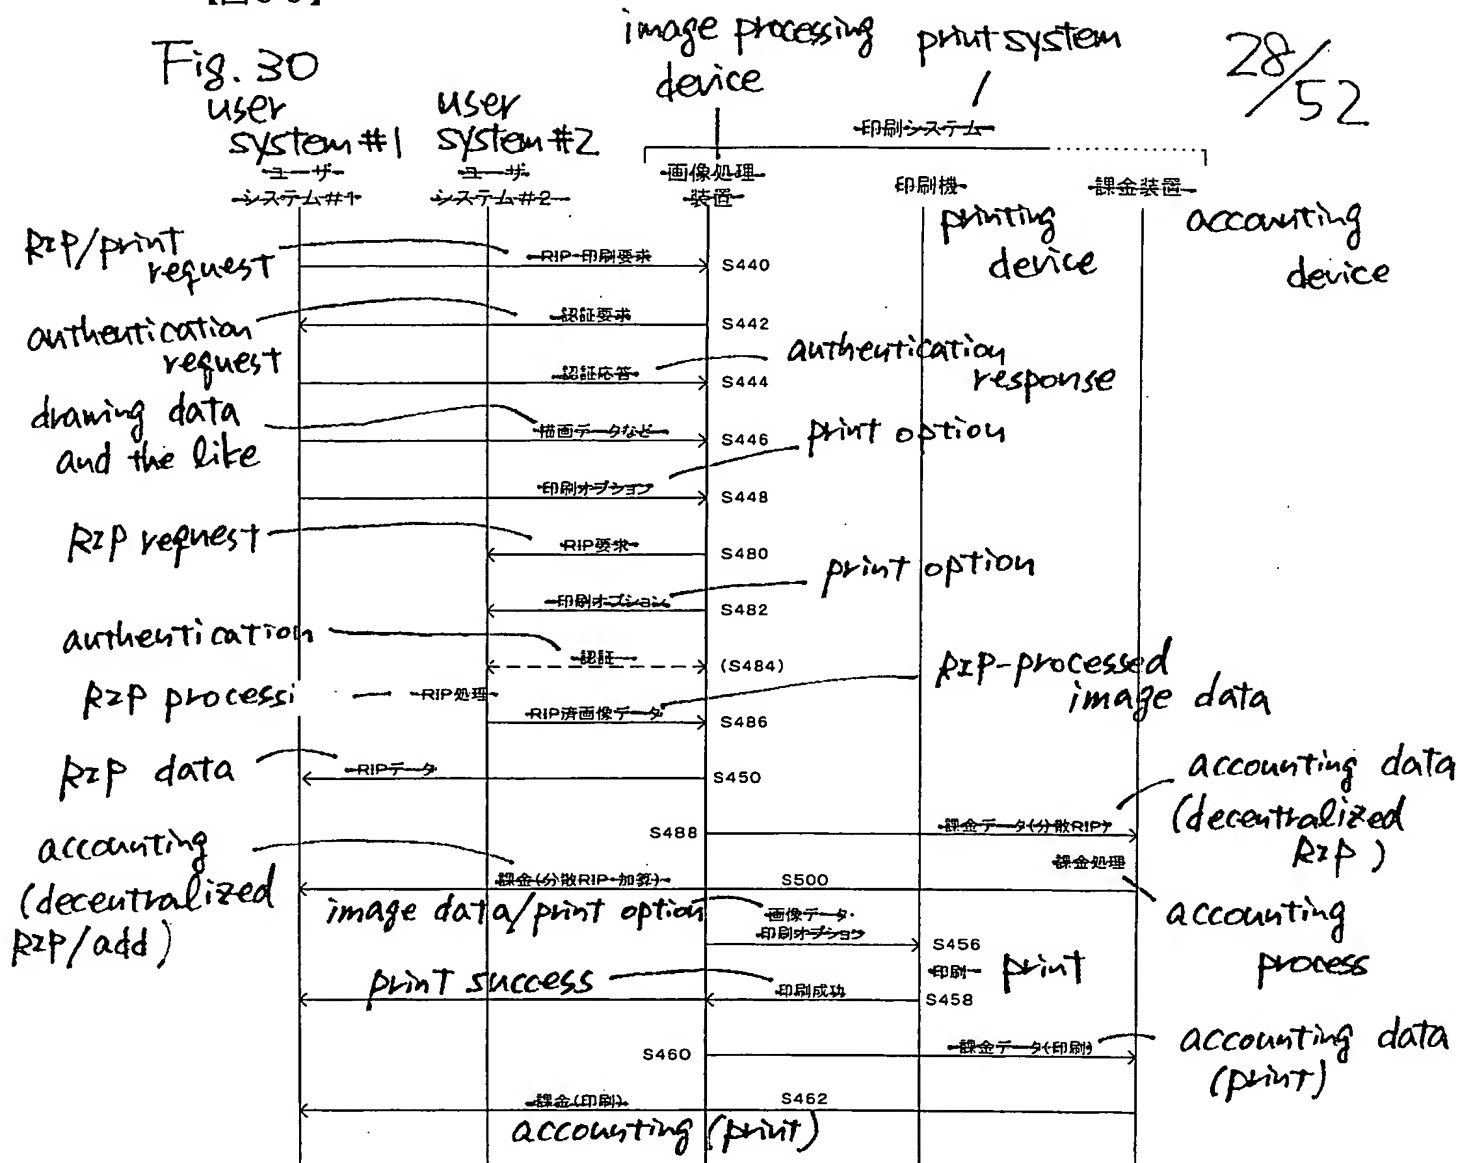 Fig. 30
28/52
image processing
device
print system
user
system #1
user
system #2
印刷システム
ユーザ
システム#1
ユーザ
システム#2
画像処理
装置
印刷機
課金装置
printing
device
accounting
device
RIP/print
request
RIP・印刷要求
S440
authentication
request
認証要求
S442
認証応答
S444
authentication
response
drawing data
and the like
描画データなど
S446
print option
印刷オプション
S448
RIP request
RIP要求
S480
print option
印刷オプション
S482
authentication
認証
(S484)
RIP processi
RIP処理
RIP済画像データ
S486
RIP-processed
image data
RIP data
RIPデータ
S450
accounting data
(decentralized
RIP)
S488
課金データ(分散RIP)
accounting
(decentralized
RIP/add)
課金処理
課金(分散RIP・加算)
S500
accounting
process
image data/print option
画像データ・
印刷オプション
S456
印刷
print
print success
印刷成功
S458
S460
課金データ(印刷)
accounting data
(print)
課金(印刷)
S462
accounting (print)